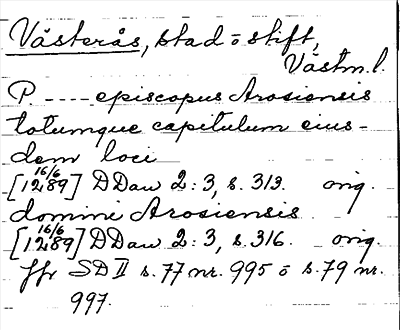 Västerås, stad o stift,
Västm. l.
P. ---- episcopus Arosiensis
totumque capitulum eius-
dem loci
[16/6 1289] DDan 2:3, s. 313. orig.
domini Arosiensis
[16/6 1289] DDan 2:3, s. 316. orig.
jfr SD II s. 77 nr. 995 o s. 79 nr.
997.